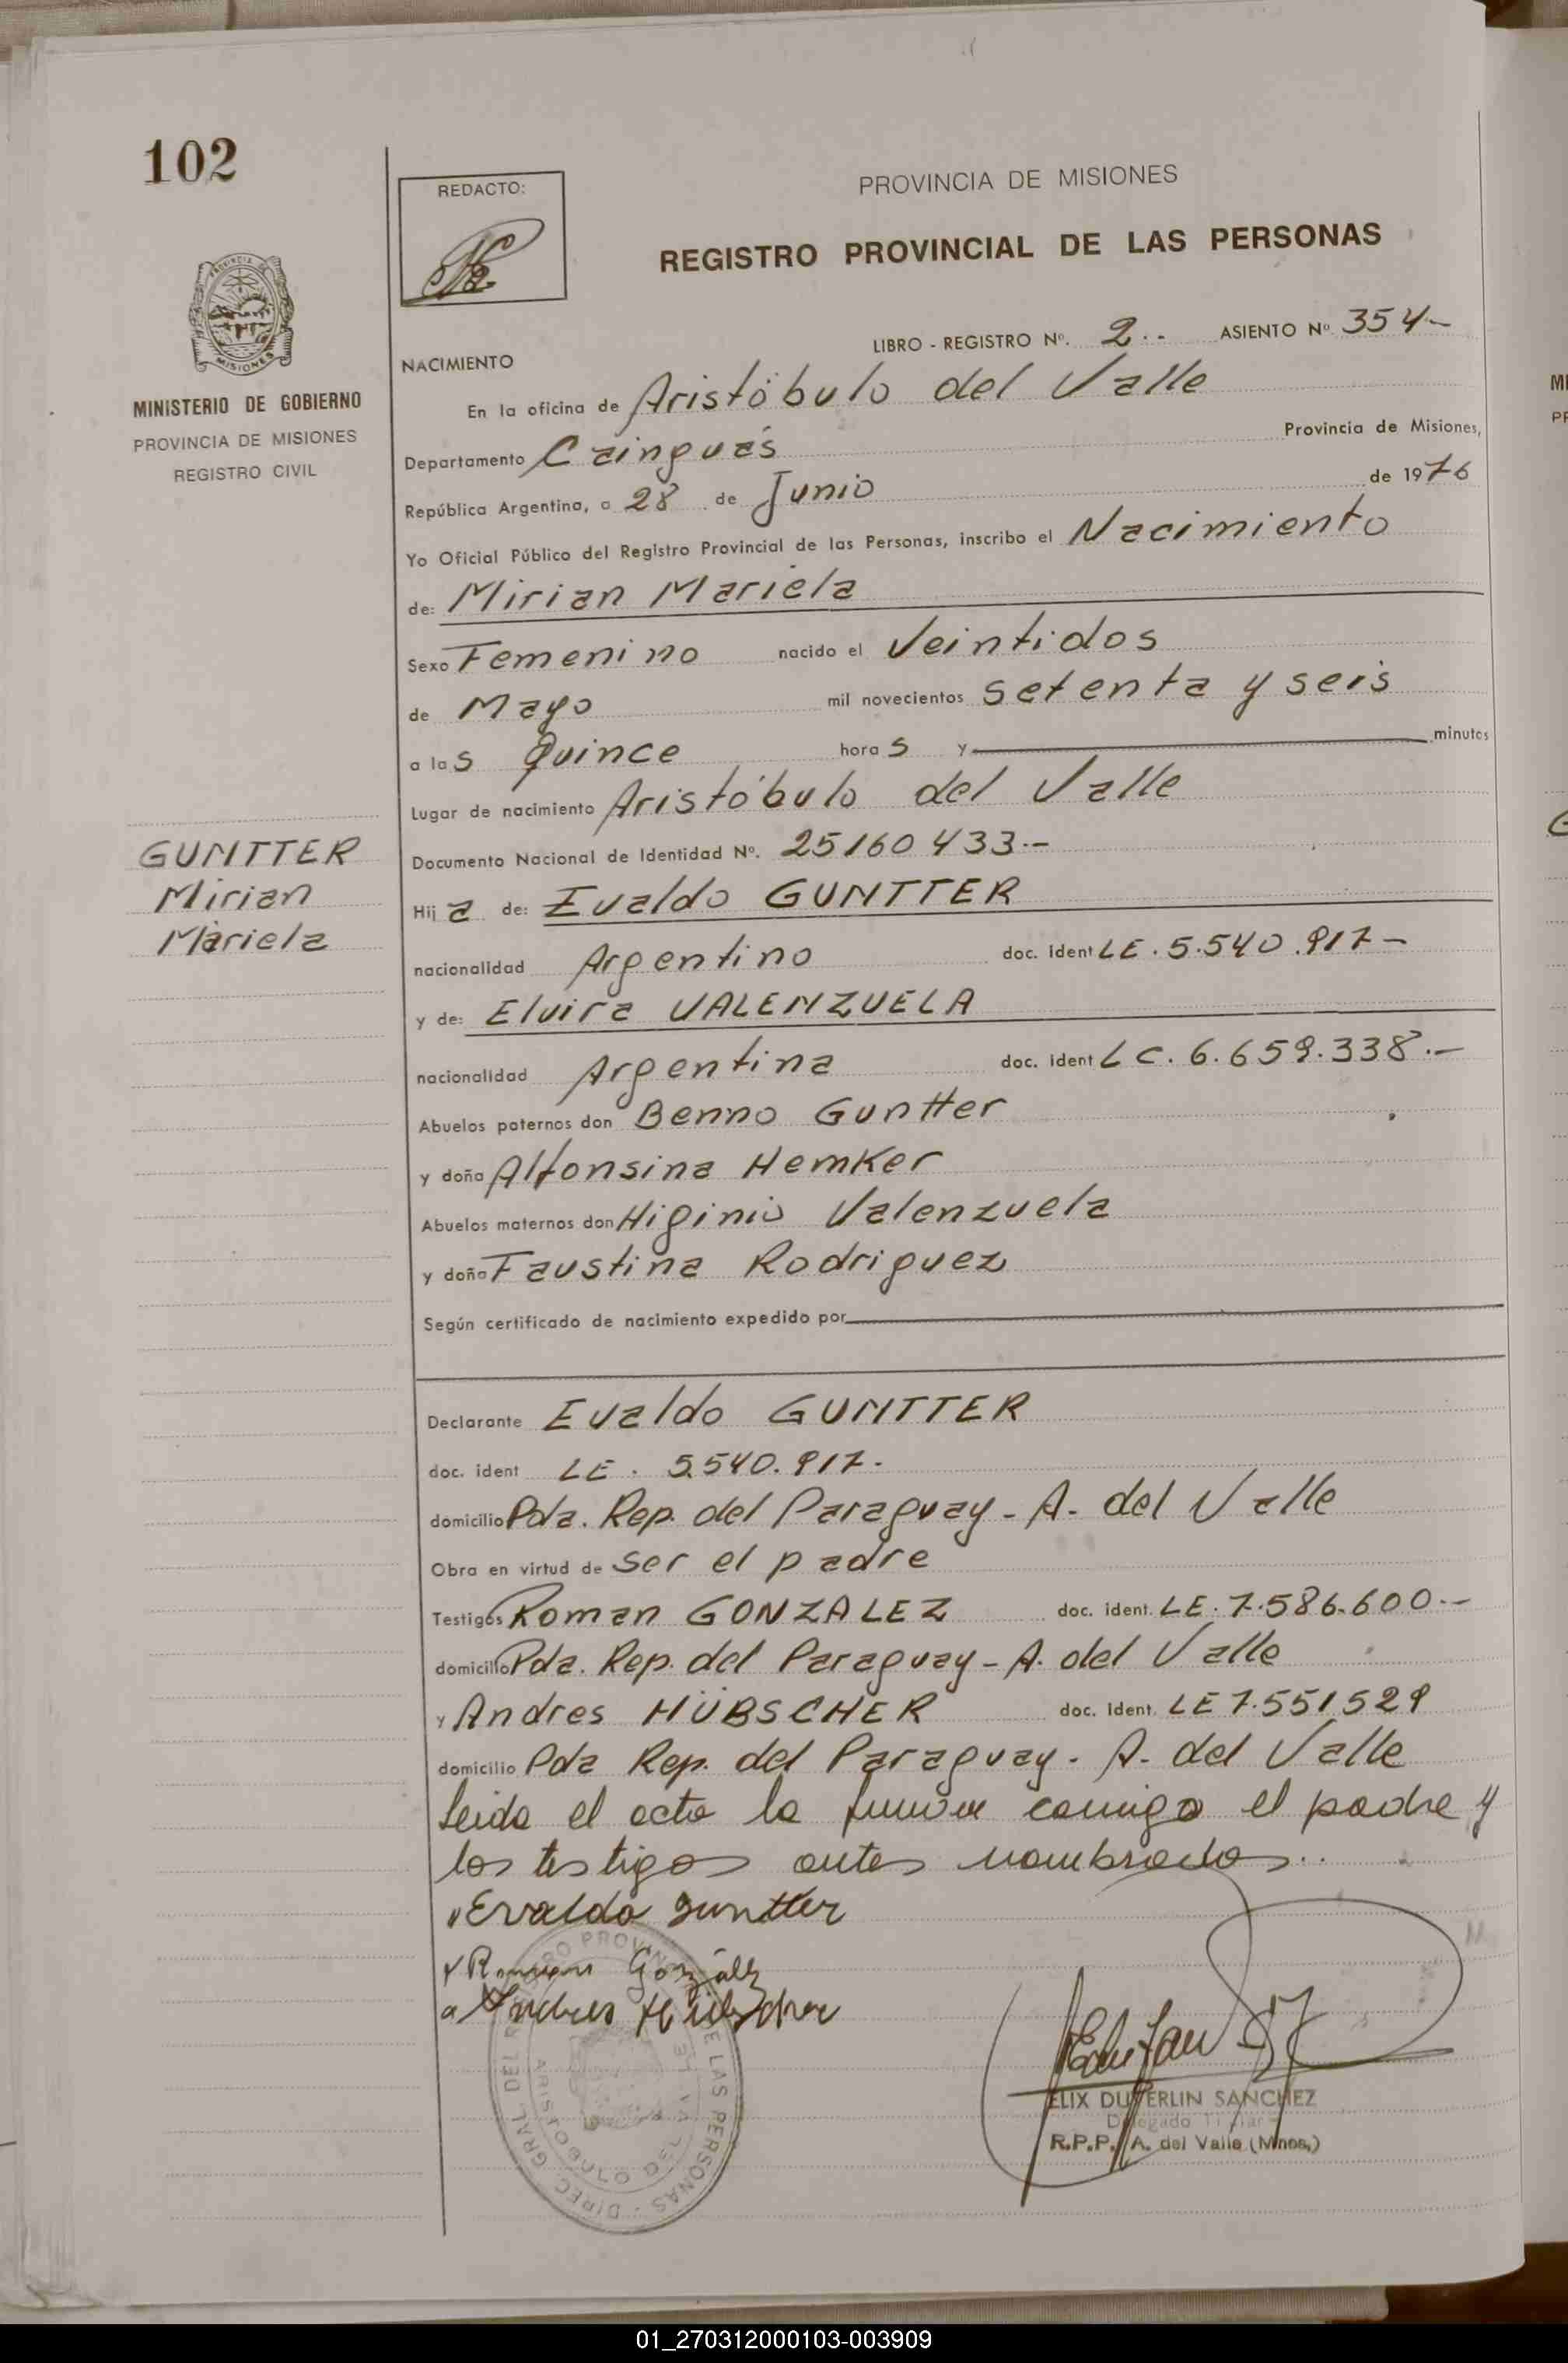 102
REDACTO:
PROVINCIA DE MISIONES
REGISTRO PROVINCIAL DE LAS PERSONAS
PROVINCIA DE
MISIONES
MINISTERIO DE GOBIERNO
PROVINCIA DE MISIONES
REGISTRO CIVIL
LIBRO - REGISTRO Nº. 2.- ASIENTO Nº 354-
NACIMIENTO
En la oficina de Aristóbulo del Valle
Departamento Cainguás Provincia de Misiones,
República Argentina, a 28 de Junio de 1976
Yo Oficial Público del Registro Provincial de las Personas, inscribo el Nacimiento
de: Mirian Mariela
Sexo Femenino nacido el Veintidos
de Mayo mil novecientos setenta y seis
a las Quince horas y minutos
Lugar de nacimiento Aristóbulo del Valle
GUNTTER
Mirian
Mariela
Documento Nacional de Identidad Nº. 25160433.-
Hija de: Evaldo GUNTTER
nacionalidad Argentino doc. ident LE. 5.540.917-
y de: Elvira VALENZUELA
nacionalidad Argentina doc. ident LC. 6.659.338.-
Abuelos paternos don Benno Guntter
y doña Alfonsina Hemker
Abuelos maternos don Higinio Valenzuela
y doña Faustina Rodriguez
Según certificado de nacimiento expedido por
Declarante Evaldo GUNTTER
doc. ident LE. 5.540.917.
domicilio Pda. Rep. del Paraguay - A. del Valle
Obra en virtud de ser el padre
Testigos Roman GONZALEZ doc. ident. LE. 7.586.600.-
domicilio Pda. Rep. del Paraguay - A. del Valle
y Andres HÜBSCHER doc. ident. LE 7.551529
domicilio Pda Rep. del Paraguay - A. del Valle
Leida el acta la firman conmigo el padre y
los testigos antes nombrados..
Evaldo Guntter
Roman González
Andres Hübscher
DIREC. GRAL. DEL REGISTRO PROVINCIAL DE LAS PERSONAS
ARISTOBULO DEL VALLE
ELIX DUTERLIN SANCHEZ
Delegado Titular
R.P.P. A. del Valle (Mnes.)
01_270312000103-003909